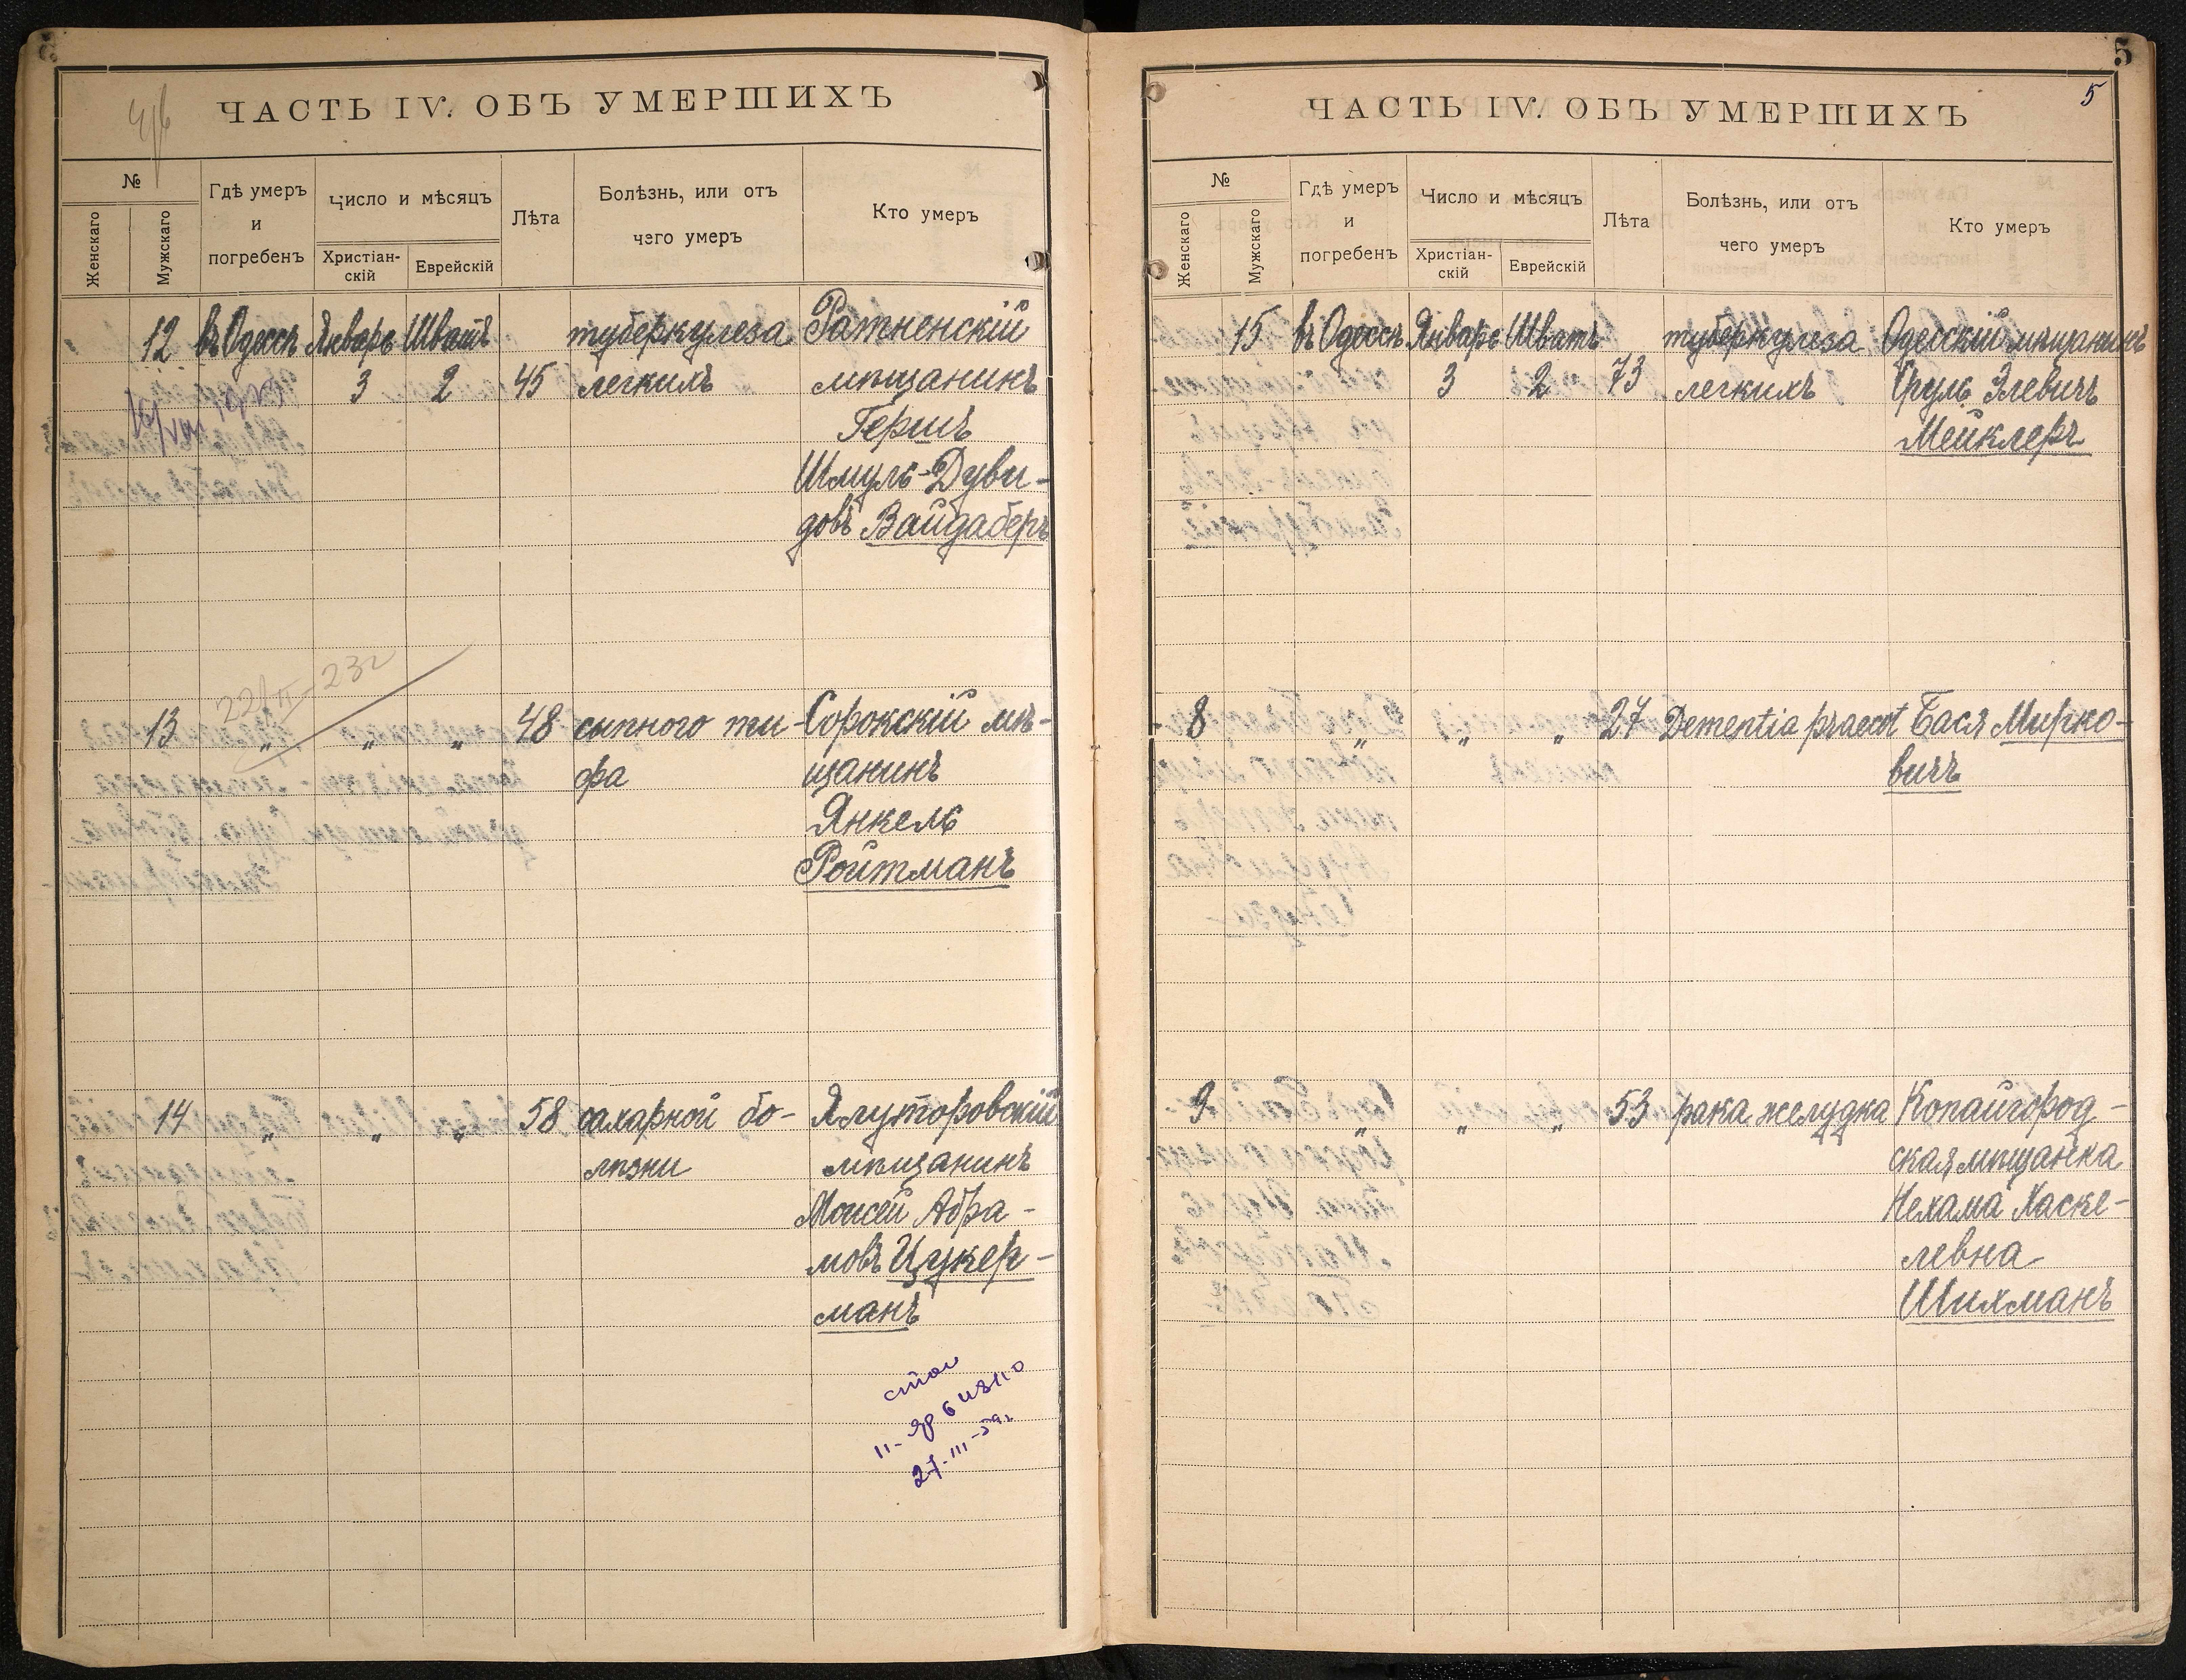 ЧАСТЬ IV. ОБЪ УМЕРШИХЪ
№
Женскаго
Мужскаго
Гдѣ умеръ
и
погребенъ
Число и мѣсяцъ
Христіан-
скій
Еврейскій
Лѣта
Болѣзнь, или отъ
чего умеръ
Кто умеръ
12 въ Одессѣ Январь Шватъ туберкулеза Ратненскій
3 2 45 легкихъ мѣщанинъ
Гершъ
Шмуль-Дуви-
довъ Вайдаберъ
22/II-23г
13 „ „ „ 48 сыпного ти- Сорокскій мѣ-
фа щанинъ
Янкель
Ройтманъ
14 „ „ „ 58 сахарной бо- Ялуторовскій
лѣзни мѣщанинъ
Моисей Абра-
мовъ Цукер-
манъ
27-III-59г.
5
5
ЧАСТЬ IV. ОБЪ УМЕРШИХЪ
№
Женскаго
Мужскаго
Гдѣ умеръ
и
погребенъ
Число и мѣсяцъ
Христіан-
скій
Еврейскій
Лѣта
Болѣзнь, или отъ
чего умеръ
Кто умеръ
15 въ Одессѣ Январь Шватъ туберкулеза Одесскій мѣщанинъ
3 2 73 легкихъ Сруль Элевичъ
Мейклеръ
8 „ „ „ 27 Dementia praecot Бася Мирко-
вичъ
9 „ „ „ 53 рака желудка Копайгород-
ская мѣщанка
Нехама Хаске-
левна
Шихманъ